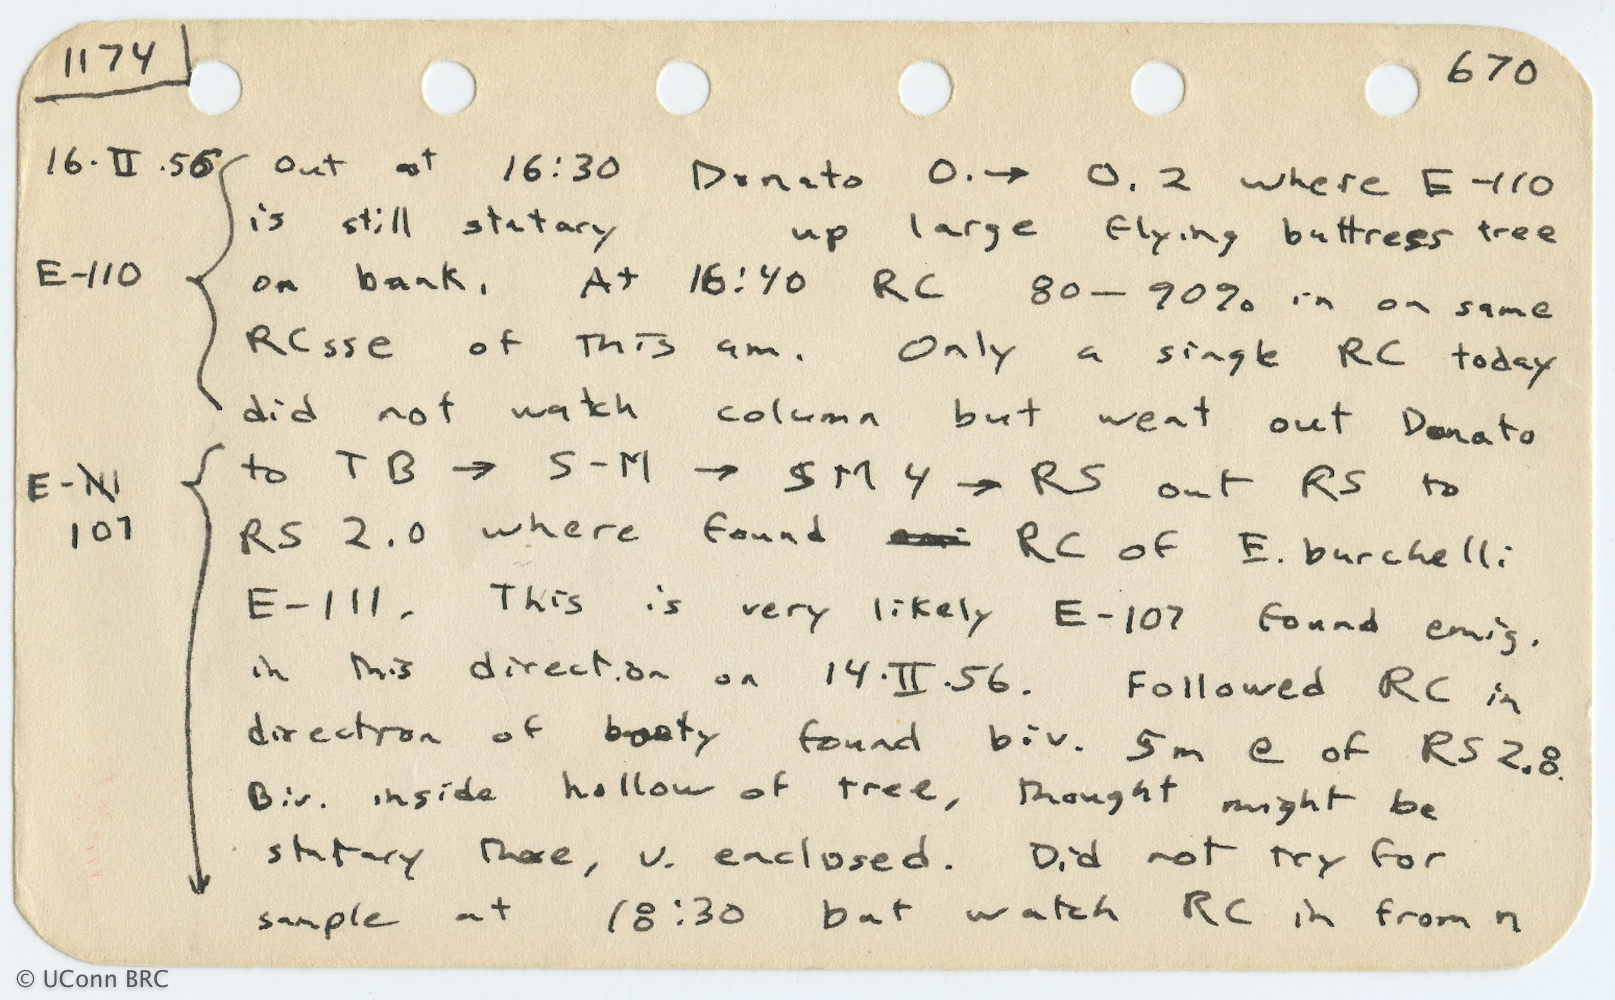 1174
670
16·II·56 Out at 16:30 Donato 0.→ 0.2 where E-110
is still statary up large flying buttress tree
E-110
on bank. At 16:40 RC 80–90% in on same
RCsse of this am. Only a single RC today
did not watch column but went out Donato
E-111
107
to TB → S-M → SM4 → RS out RS to
RS 2.0 where found RC of E. burchelli
E-111. This is very likely E-107 found emig.
in this direction on 14·II·56. Followed RC in
direction of booty found biv. 5m e of RS 2.8.
Biv. inside hollow of tree, thought might be
statary there, v. enclosed. Did not try for
sample at 18:30 but watch RC in from n
© UConn BRC